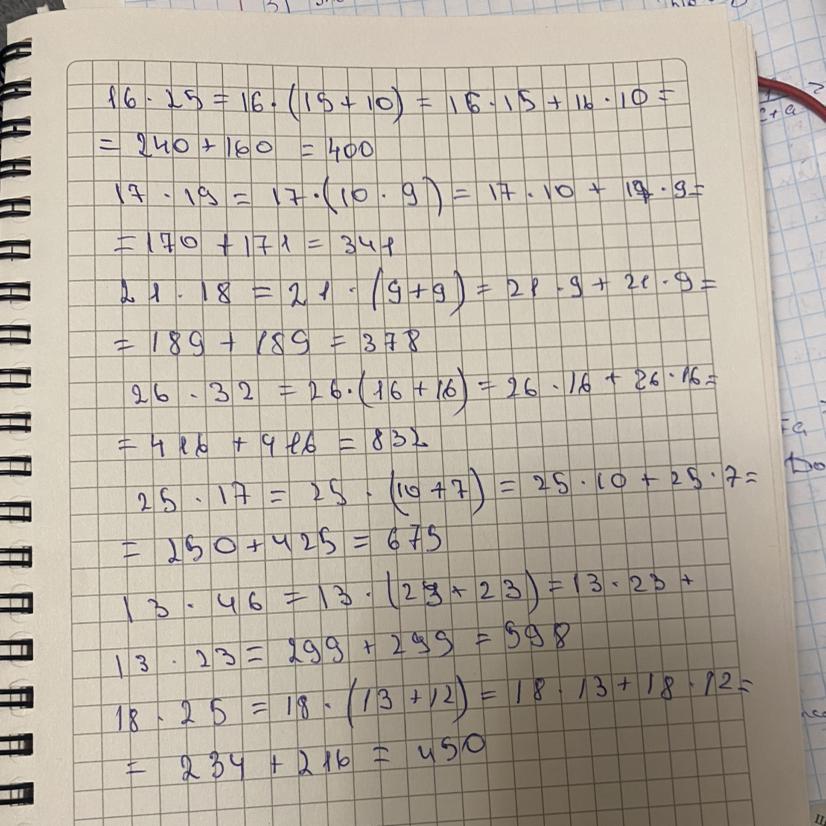 16 · 25 = 16 · (15 + 10) = 16 · 15 + 16 · 10 =
= 240 + 160 = 400
17 · 19 = 17 · (10 · 9) = 17 · 10 + 19 · 9 =
= 170 + 171 = 341
21 · 18 = 21 · (9 + 9) = 21 · 9 + 21 · 9 =
= 189 + 189 = 378
26 · 32 = 26 · (16 + 16) = 26 · 16 + 26 · 16 =
= 416 + 416 = 832
25 · 17 = 25 · (10 + 7) = 25 · 10 + 25 · 7 =
= 250 + 425 = 675
13 · 46 = 13 · (23 + 23) = 13 · 23 +
13 · 23 = 299 + 299 = 598
18 · 25 = 18 · (13 + 12) = 18 · 13 + 18 · 12 =
= 234 + 216 = 450